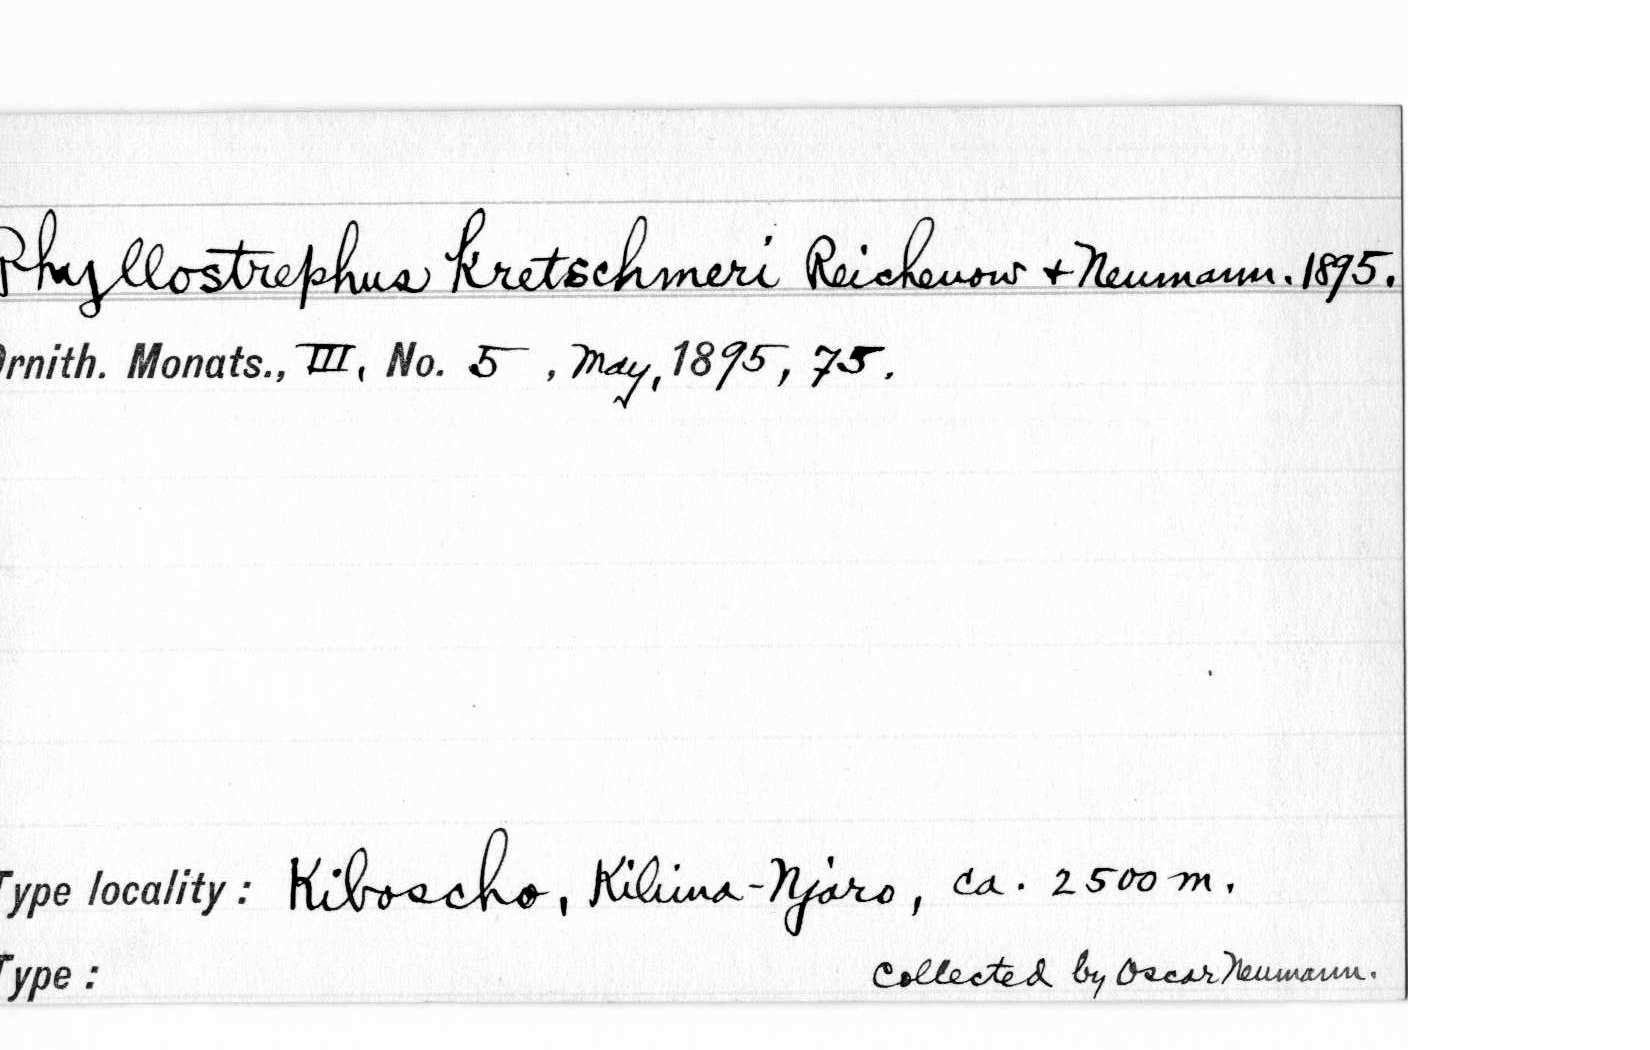 Phyllostrephus kretschmeri Reichenow + Neumann. 1895.
Ornith. Monats., III, No. 5, May, 1895, 75.
Type locality: Kiboscho, Kilima-Njaro, ca. 2500 m.
Type: collected by Oscar Neumann.